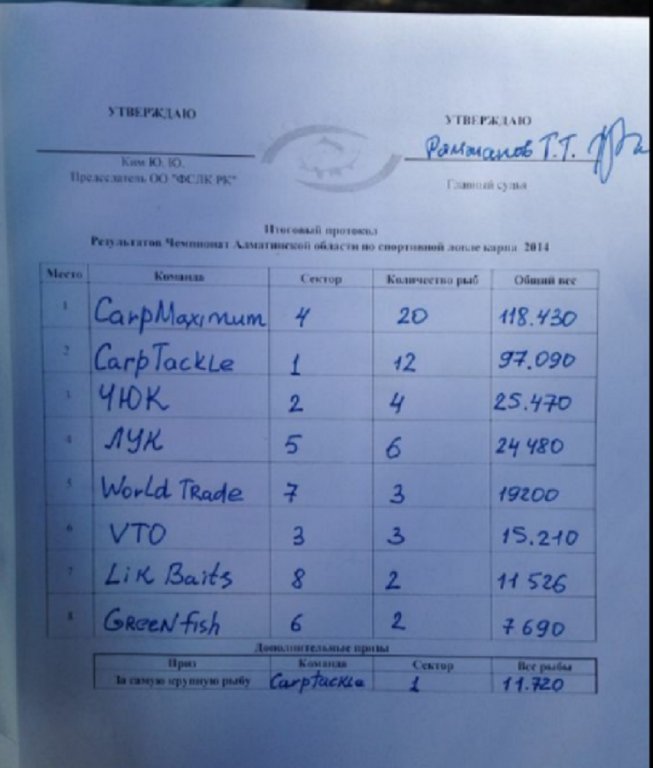 УТВЕРЖДАЮ
УТВЕРЖДАЮ
Рамжанов Т.Т.
Ким Ю. Ю.
Председатель ОО "ФСЛК РК"
Главный судья
Итоговый протокол
Результатов Чемпионат Алматинской области по спортивной ловле карпа 2014
Место Команда Сектор Количество рыб Общий вес
1 CarpMaximum 4 20 118.430
2 CarpTackle 1 12 97.090
3 ЧЮК 2 4 25.470
4 ЛУК 5 6 24 480
5 World Trade 7 3 19200
6 VTO 3 3 15.210
7 Lik Baits 8 2 11 526
8 Greenfish 6 2 7 690
Дополнительные призы
Приз Команда Сектор Вес рыбы
За самую крупную рыбу Carptackle 1 11.720